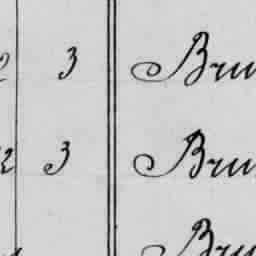 2 3 Bru
2 3 Bru
Bru